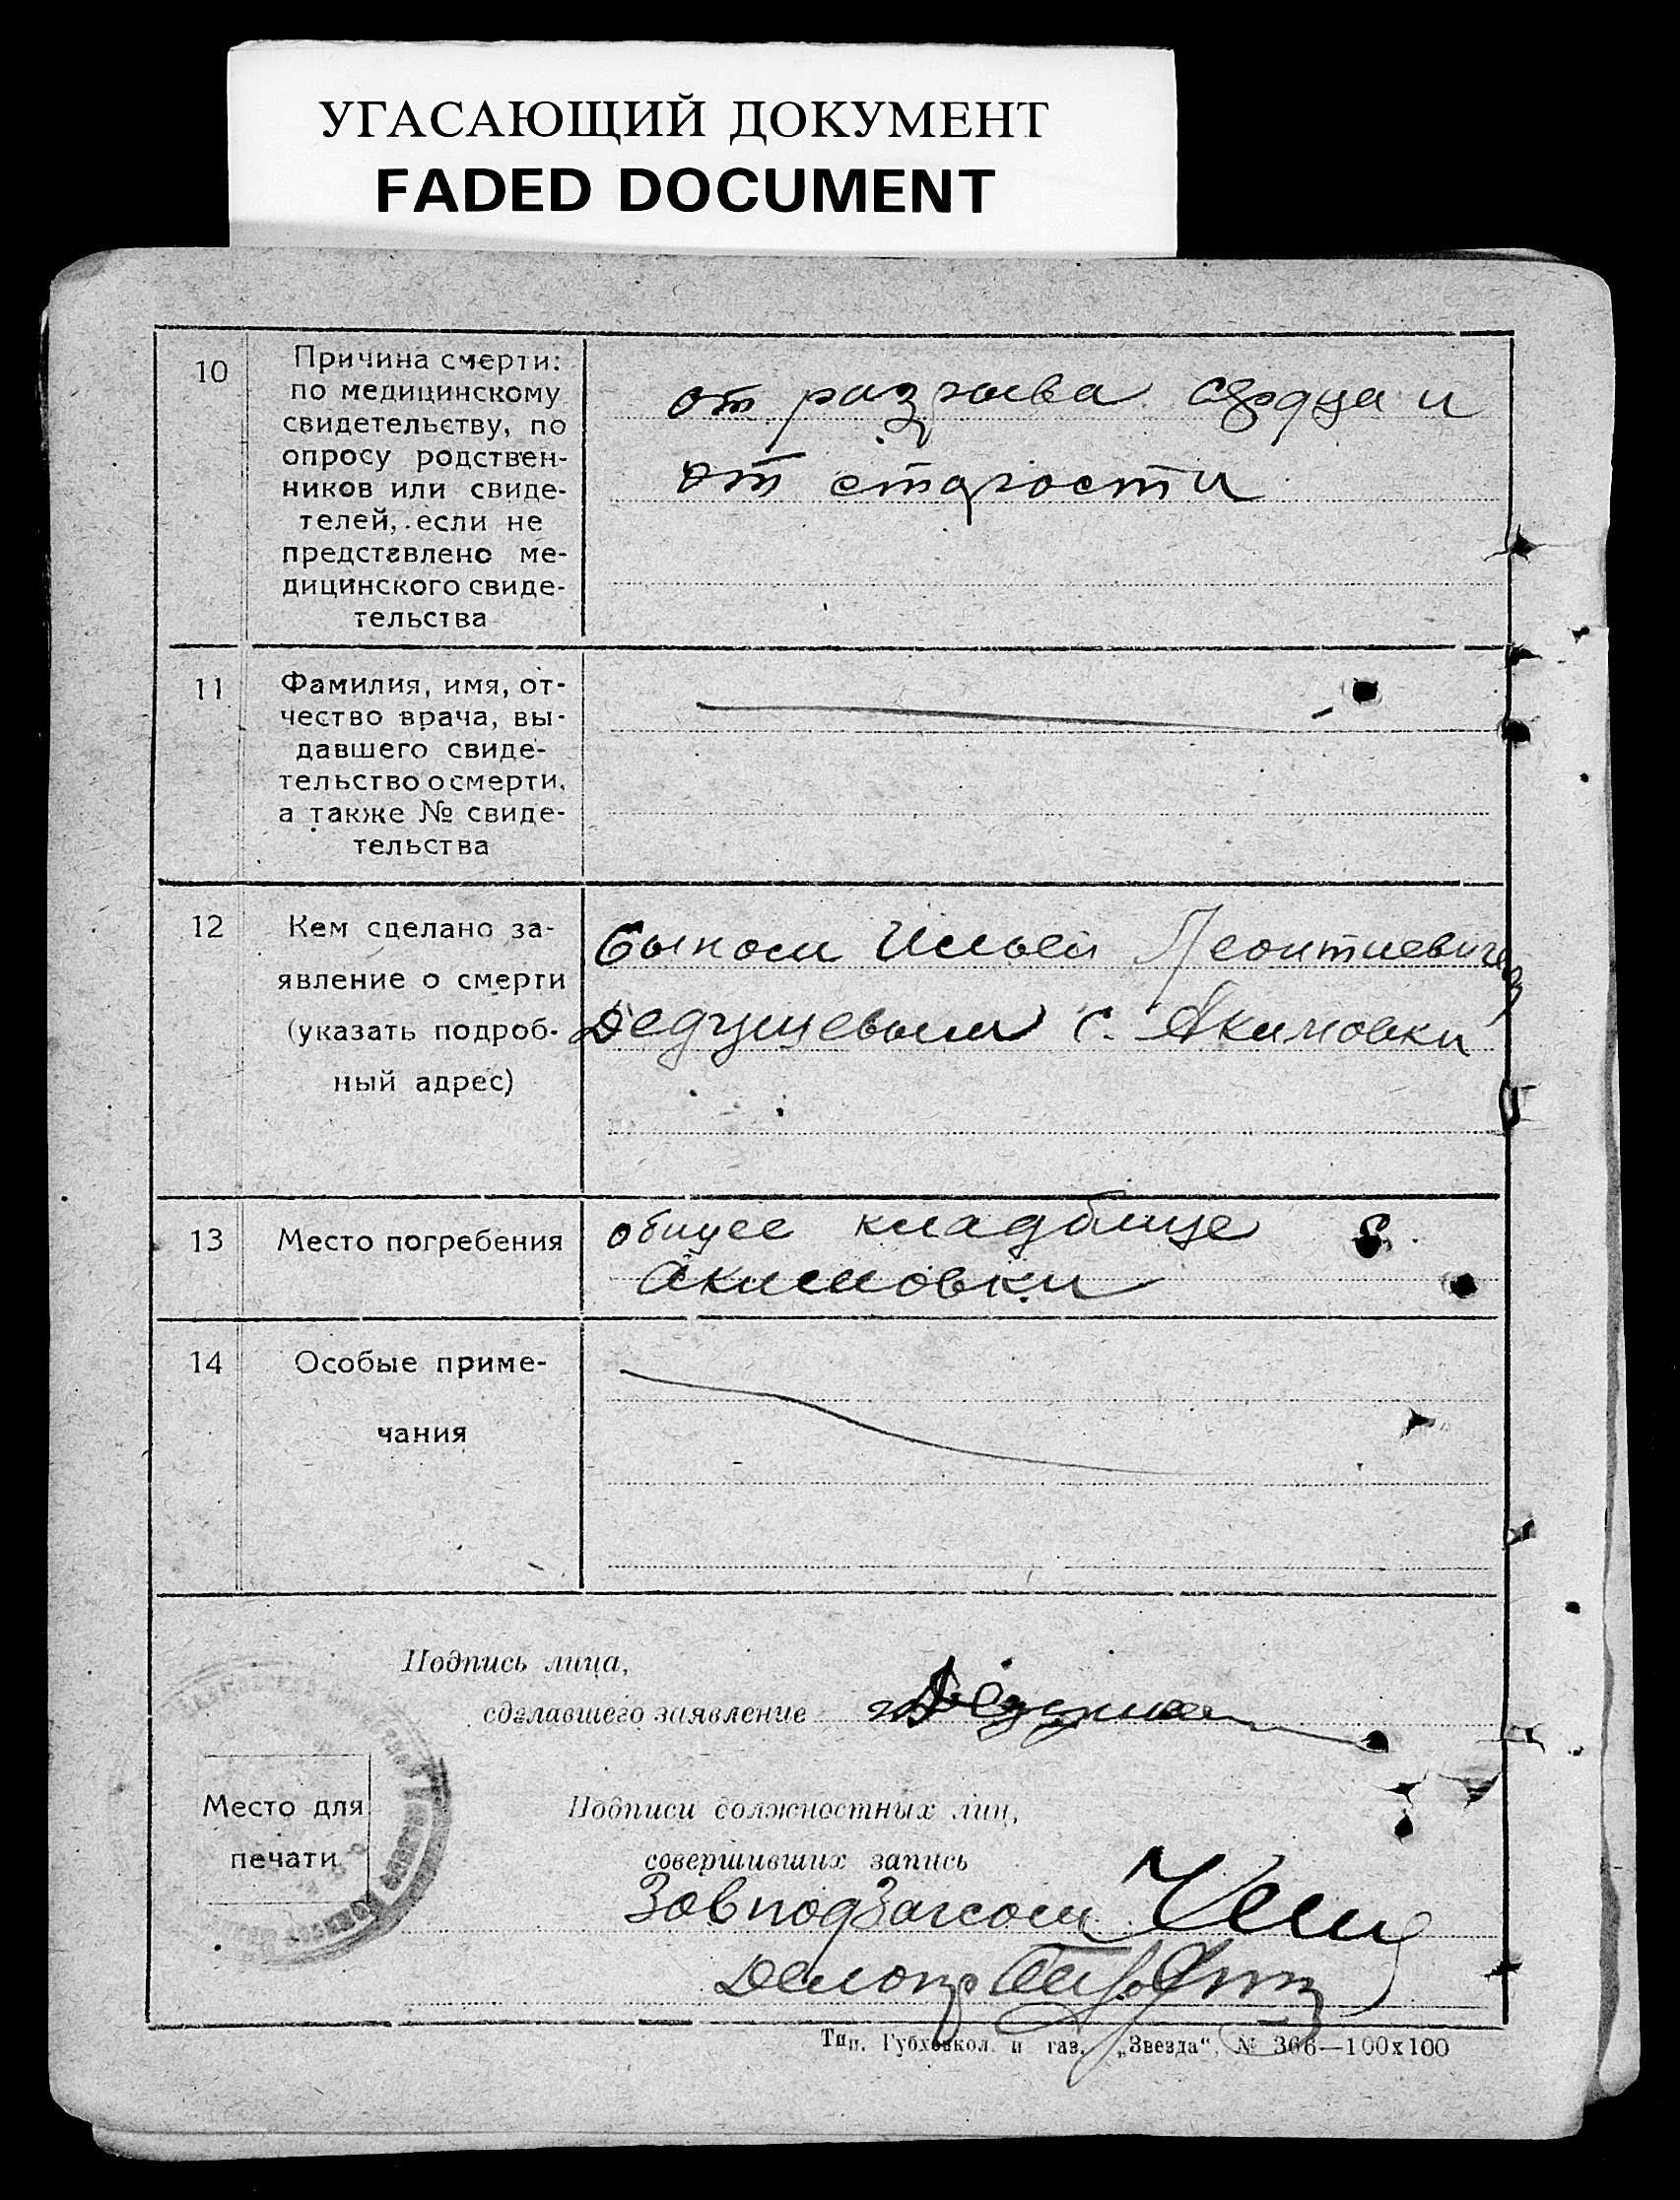 УГАСАЮЩИЙ ДОКУМЕНТ
FADED DOCUMENT
10
Причина смерти:
по медицинскому
свидетельству, по
опросу родствен-
ников или свиде-
телей, если не
представлено ме-
дицинского свиде-
тельства
от разрыва сердца и
от старости
11
Фамилия, имя, от-
чество врача, вы-
давшего свиде-
тельство о смерти,
а также № свиде-
тельства
12
Кем сделано за-
явление о смерти
(указать подроб-
ный адрес)
Сыном Ильей Леонтиевичем
Дедушевым с. Акимовки
13
Место погребения
общее кладбище
Акимовки
14
Особые приме-
чания
Подпись лица,
сделавшего заявление
Место для
печати
Подписи должностных лиц,
совершивших запись
Завподзагсом
Делопр
Тип. Губхозкол. и газ. „Звезда“, № 366—100х100